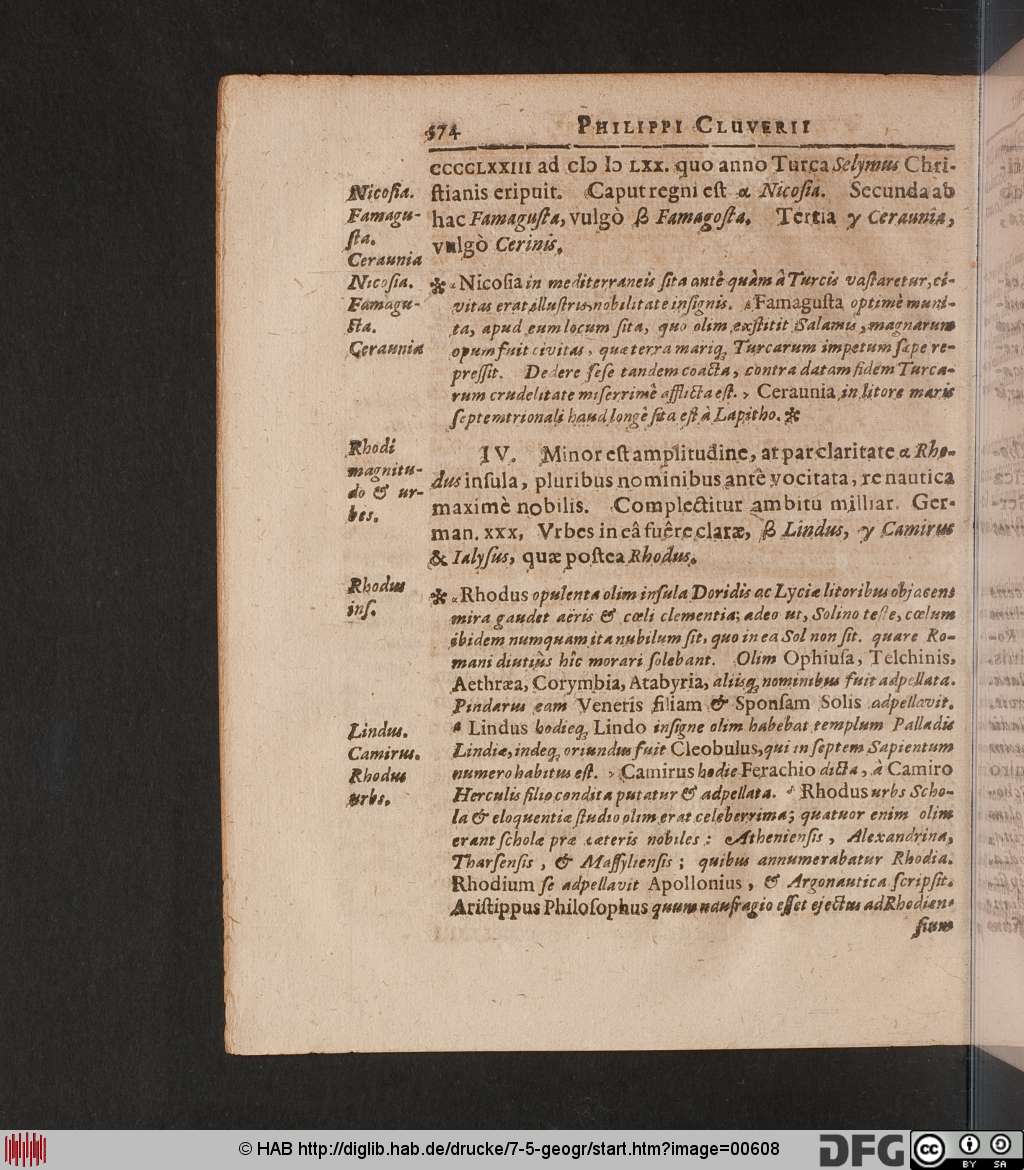 574 PHILIPPI CLUVERII
CCCCLXXIII ad cIↄ Iↄ LXX. quo anno Turca Selymus Chri-
ſtianis eripuit. Caput regni eſt α Nicoſia. Secunda ab
hac Famaguſta, vulgò β Famagoſta. Tertia γ Ceraunîa,
vulgò Cerinis.
Nicoſia.
Famagu-
ſta.
Ceraunia
✻ α Nicoſia in mediterraneis ſita antê quàm à Turcis vaſtaretur, ci-
vitas erat illuſtris, nobilitate inſignis. β Famaguſta optimè muni-
ta, apud eum locum ſita, quo olim exſtitit Salamis, magnarum
opum fuit civitas, quæ terra mariq; Turcarum impetum ſæpe re-
preſſit. Dedere ſeſe tandem coacta, contra datam fidem Turca-
rum crudelitate miſerrimè afflicta eſt. γ Ceraunia in litore maris
ſeptemtrionali haud longè ſita eſt à Lapitho. ✻
Nicoſia.
Famagu-
ſta.
Ceraunia
IV. Minor eſt amplitudine, at par claritate α Rho-
dus inſula, pluribus nominibus antê vocitata, re nautica
maximè nobilis. Complectitur ambitu milliar. Ger-
man. XXX, Vrbes in eâ fuêre claræ, β Lindus, γ Camirus
& Ialyſus, quæ poſtea Rhodus.
Rhodi
magnitu-
do & ur-
bes.
✻ α Rhodus opulenta olim inſula Doridis ac Lyciæ litoribus objacens
mira gaudet aëris & cœli clementia; adeo ut, Solino teſte, cœlum
ibidem numquam ita nubilum ſit, quo in ea Sol non ſit. quare Ro-
mani diutiùs hîc morari ſolebant. Olim Ophiuſa, Telchinis,
Aethræa, Corymbia, Atabyria, aliisq; nominibus fuit adpellata.
Pindarus eam Veneris filiam & Sponſam Solis adpellavit.
β Lindus hodieq; Lindo inſigne olim habebat templum Palladis
Lindiæ, indeq; oriundus fuit Cleobulus, qui in ſeptem Sapientum
numero habitus eſt. γ Camirus hodie Ferachio dicta, à Camiro
Herculis filio condita putatur & adpellata. δ Rhodus urbs Scho-
la & eloquentiæ ſtudio olim erat celeberrima; quatuor enim olim
erant ſcholæ præ cæteris nobiles: Athenienſis, Alexandrina,
Tharſenſis, & Maſſylienſis; quibus annumerabatur Rhodia.
Rhodium ſe adpellavit Apollonius, & Argonautica ſcripſit.
Ariſtippus Philoſophus quum naufragio eſſet ejectus ad Rhodien-
ſium
Rhodus
inſ.
Lindus.
Camirus.
Rhodus
urbs.
© HAB http://diglib.hab.de/drucke/7-5-geogr/start.htm?image=00608
DFG
cc
BY SA